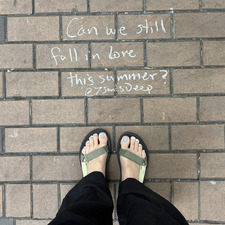 Can we still
fall in love
this summer?
@7SinsDeep